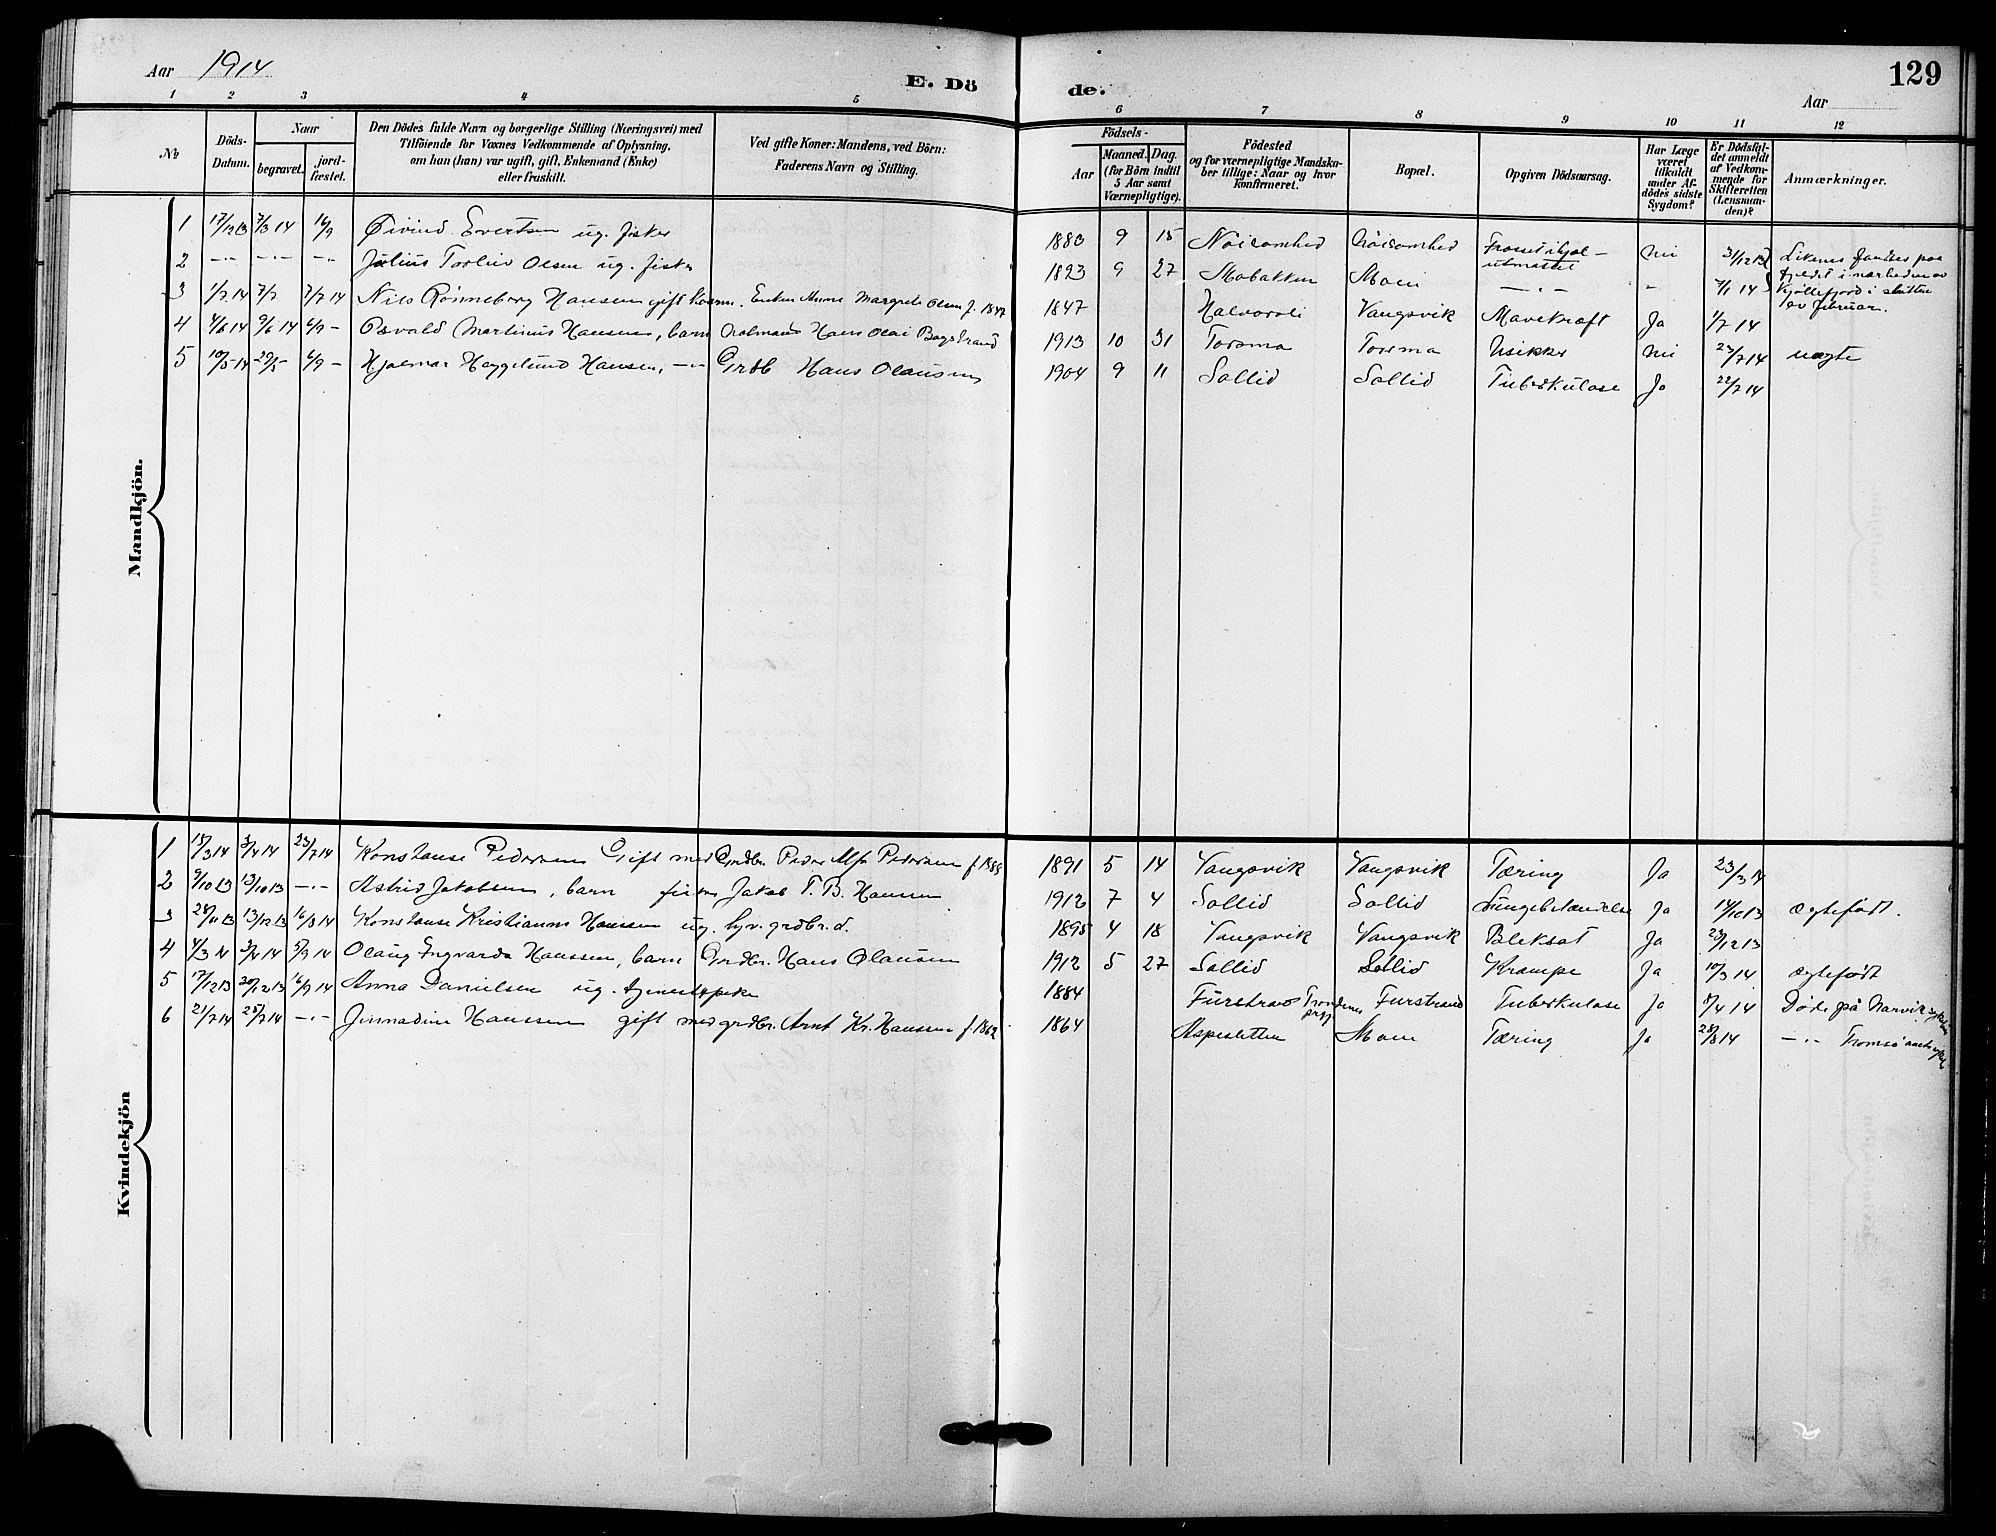 Aar 1914
E. Dö
de.
Aar
129
1 2 3 4 5 6 7 8 9 10 11 12
No
Döds-Datum.
Naar
begravet.
jord-fæstet.
Den Dödes fulde Navn og borgerlige Stilling (Næringsvei) med
Tilföiende for Voxnes Vedkommende af Oplysning,
om han (hun) var ugift, gift, Enkemand (Enke)
eller fraskilt.
Ved gifte Koner: Mandens, ved Börn:
Faderens Navn og Stilling.
Födsels-
Aar
Maaned. Dag.
(for Börn indtil
5 Aar samt
Værnepligtige).
Födested
og for værnepligtige Mandska-
ber tillige: Naar og hvor
konfirmeret.
Bopæl.
Opgiven Dödsaarsag.
Har Læge
været
tilkaldt
under Af-
dödes sidste
Sygdom?
Er Dödsfal-
det anmeldt
af Vedkom-
mende for
Skifteretten
(Lensman-
den)?
Anmærkninger.
Mandkjön.
1 17/12 13 7/3 14 16/9 Øivind Evertsen ug. fisker 1883 9 15 Nöisomhed Nöisomhed Frosset ihjel - utmattet nei 31/12 13 Likene fandtes paa
2 -"- -"- -"- Julius Torleiv Olsen ug. fisker 9 27 Mobakken Moen -"- - 7/1 14 fjeldet i nærheden av
Kjöllefjord i slutten
av februar.
3 1/7 14 7/7 7/7 14 Nils Rönneberg Hansen gift Anne Margrete Olsen f. 1847 Halvorsli Vangsvik Mavekræft Ja 1/7 14
4 4/6 14 9/6 14 6/9 - Osvald Martinus Hansen, barn Hans Olai 1913 10 31 Torsmo Torsmo Usikker nei 23/7 14 uægte
5 10/5 14 20/5 6/9 - Hjalmar Haggelund Hansen, -"- Grdb Hans Olausen 1904 9 11 Sollid Sollid Tuberkulose Ja 22/7 14
Kvindekjön
1 15/3 14 3/4 14 23/7 14 Konstanse Pedersen Gift med Grdbr. Peder Alf. Pedersen 1891 5 14 Vangsvik Vangsvik Tæring Ja 23/3 14
2 9/10 13 13/10 13 -"- Astrid Jakobsen, barn fisker Jakob T. B. Hansen 1912 7 4 Sollid Sollid Lungebetændelse Ja 14/10 13 Ægtefødt.
3 28/11 13 13/12 13 16/8 14 Konstanse Kristianne Hansen ug. grdbr. d. 1895 4 18 Vangsvik Vangsvik Bleksot Ja 23/12 13
4 4/3 14 3/4 14 5/9 14 Olaug Ingvarda Hanssen, barn Grdbr. Hans Olausen 1912 5 27 Sollid Sollid Krampe Ja 10/3 14 Ægtefødt
5 7/12 13 20/12 13 16/9 14 Anna Danielsen ug. tjenestepike 1884 Furstrand Trondenes prgj. Furstrand Tuberkulose Ja 8/4 14 Døde på Narvik
6 21/7 14 25/7 14 -"- Jinnadine Hanssen gift med grdbr. Arnt Kr. Hanssen 1864 Aspesletten Moen Tæring Ja 28/8 14 -"- Tromsø